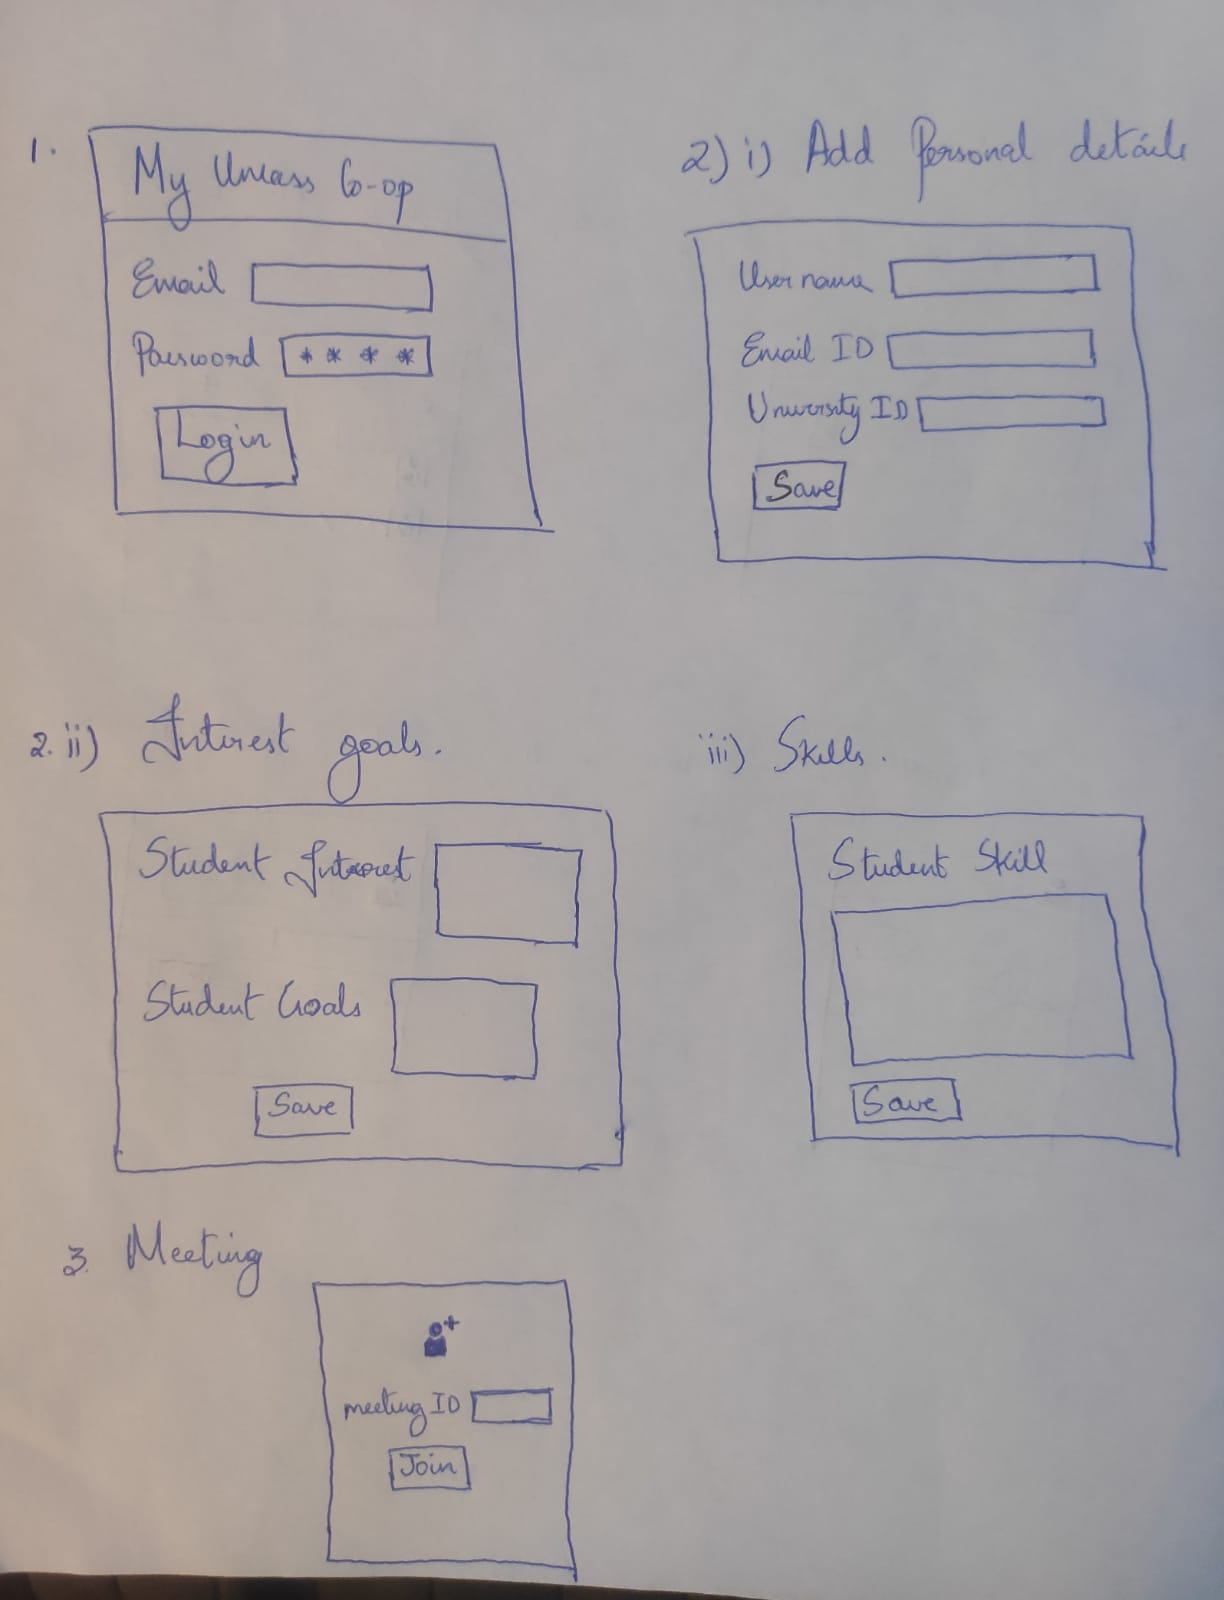 1.
My Umass Co-op
Email
Password * * * *
Login
2) i) Add Personal details
User name
Email ID
University ID
Save
2. ii) Interest goals.
Student Interest
Student Goals
Save
iii) Skills.
Student Skill
Save
3. Meeting
meeting ID
Join